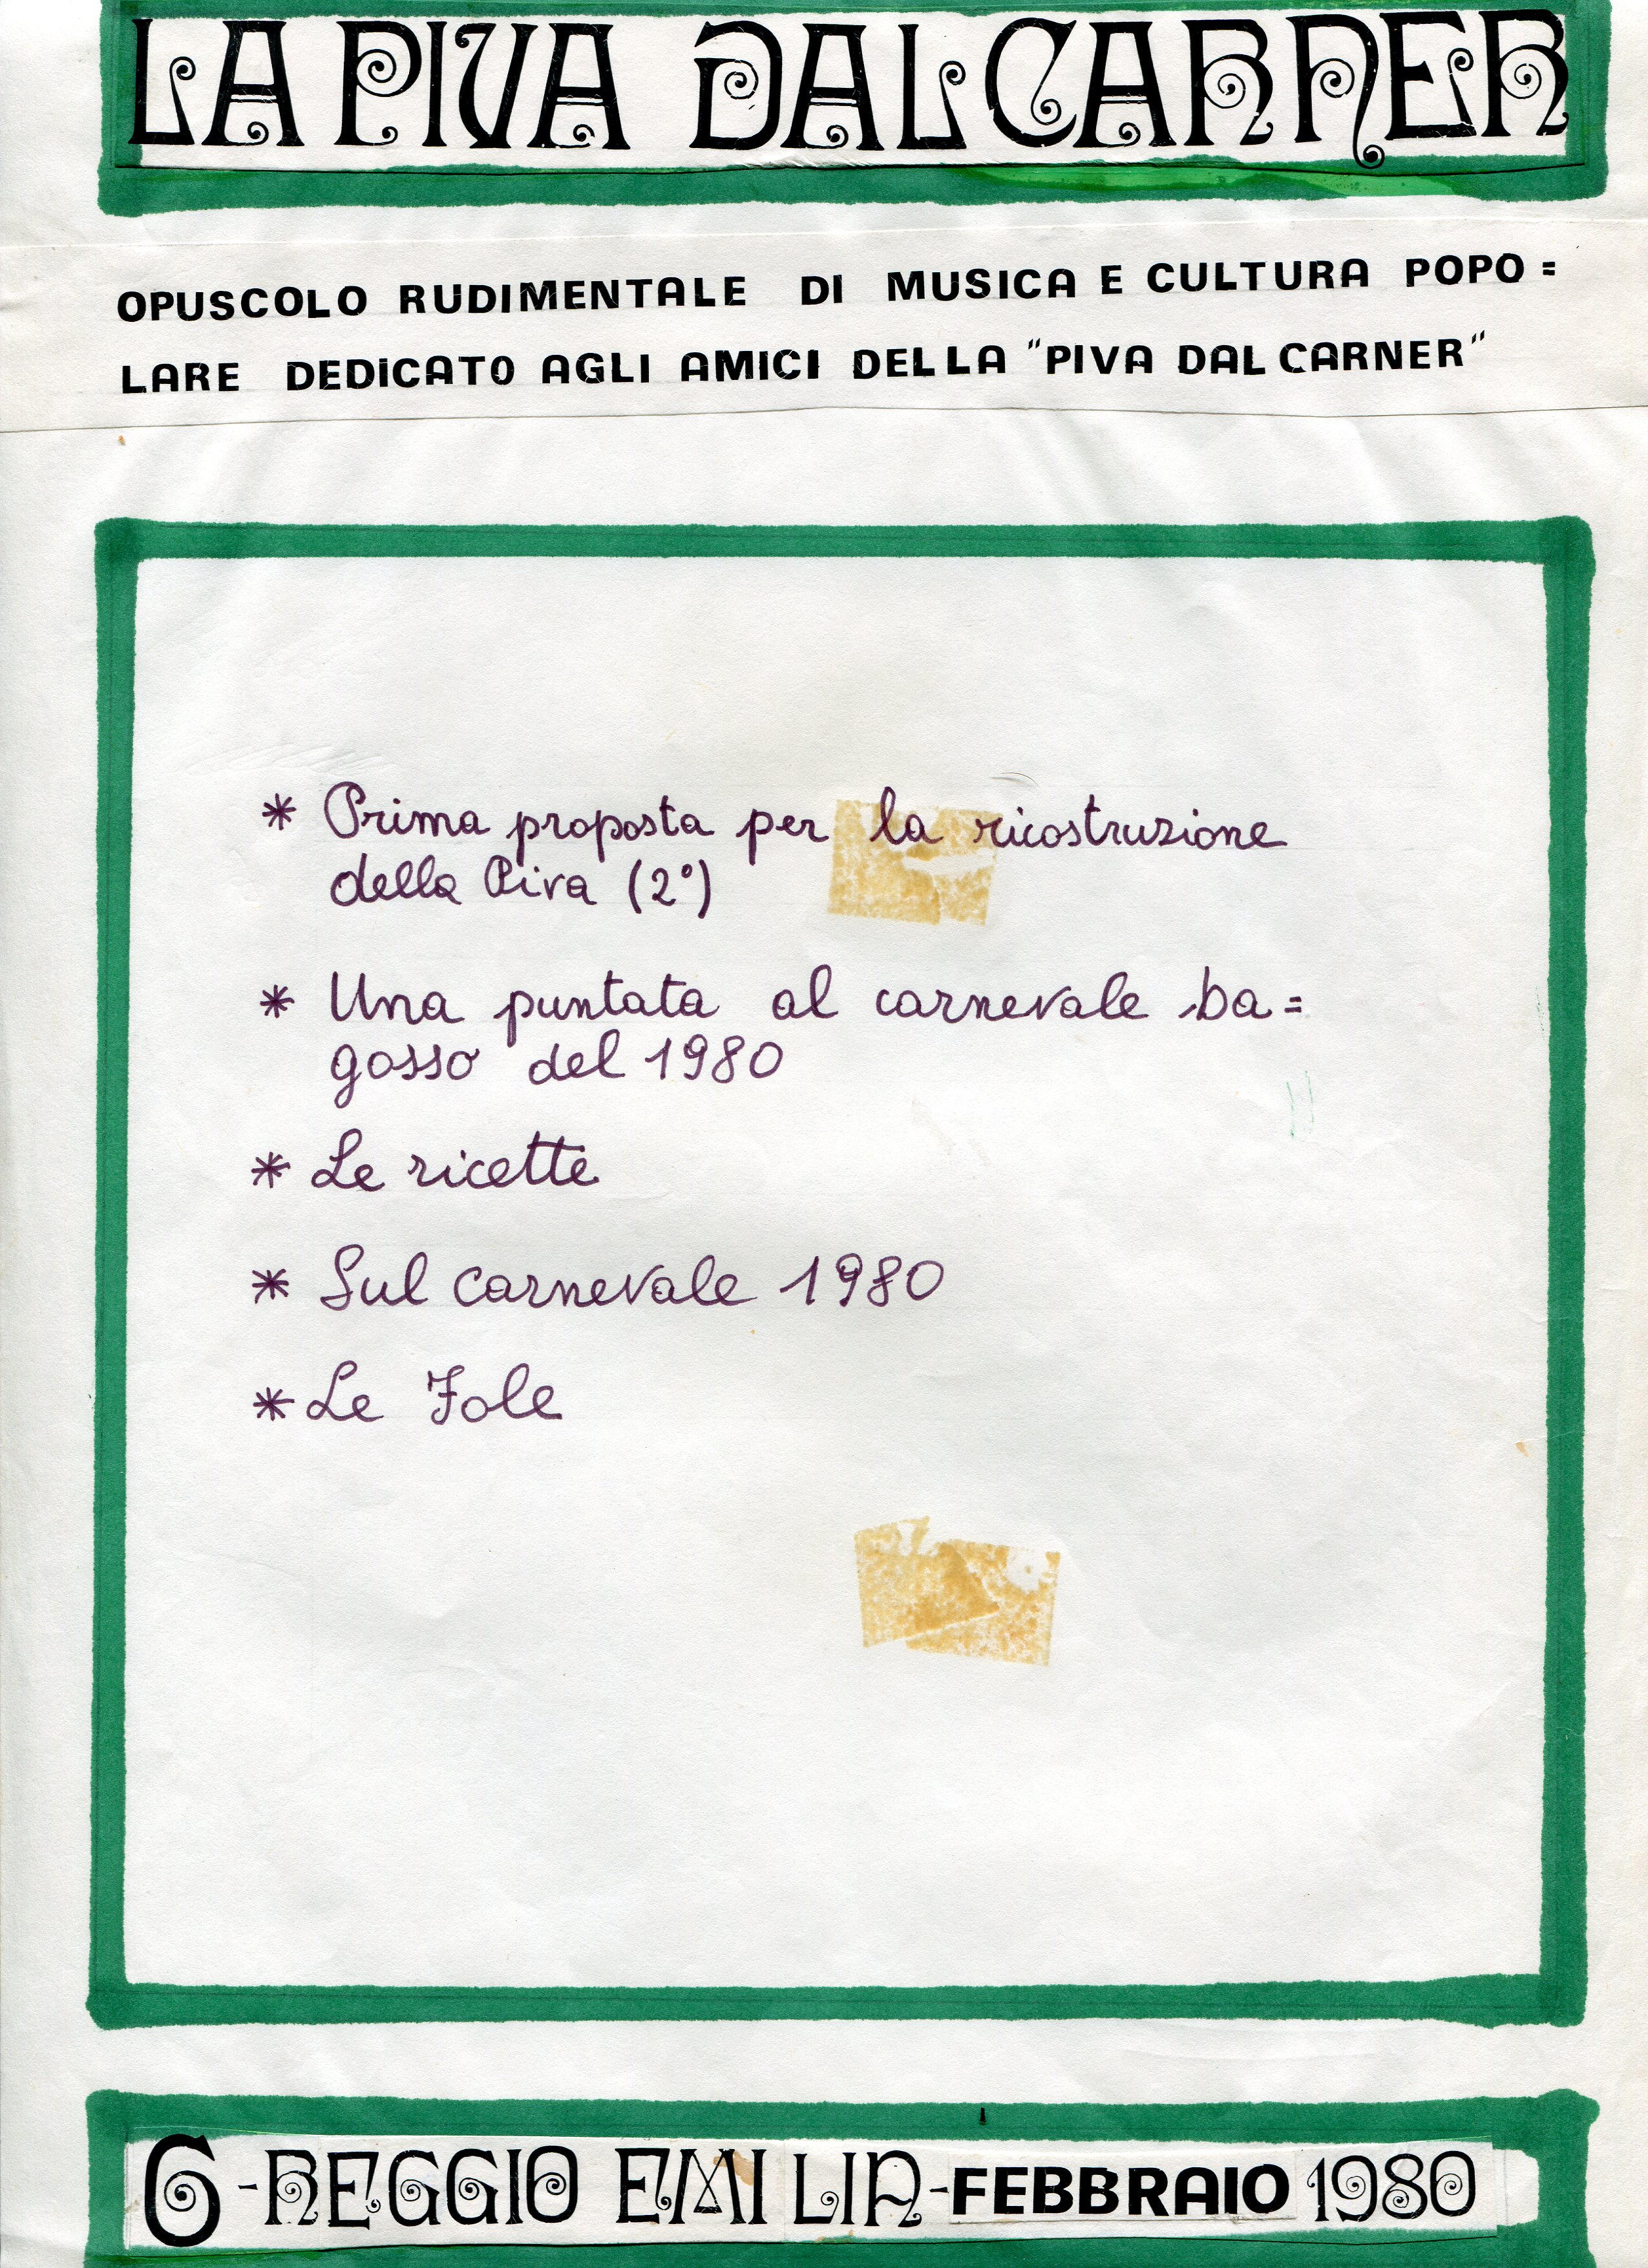 LA PIVA DAL CARNER
OPUSCOLO RUDIMENTALE DI MUSICA E CULTURA POPO=
LARE DEDICATO AGLI AMICI DELLA "PIVA DAL CARNER"
* Prima proposta per la ricostruzione
della Piva (2°)
* Una puntata al carnevale ba=
gosso del 1980
* Le ricette
* Sul carnevale 1980
* Le Fole
6-REGGIO EMILIA-FEBBRAIO 1980